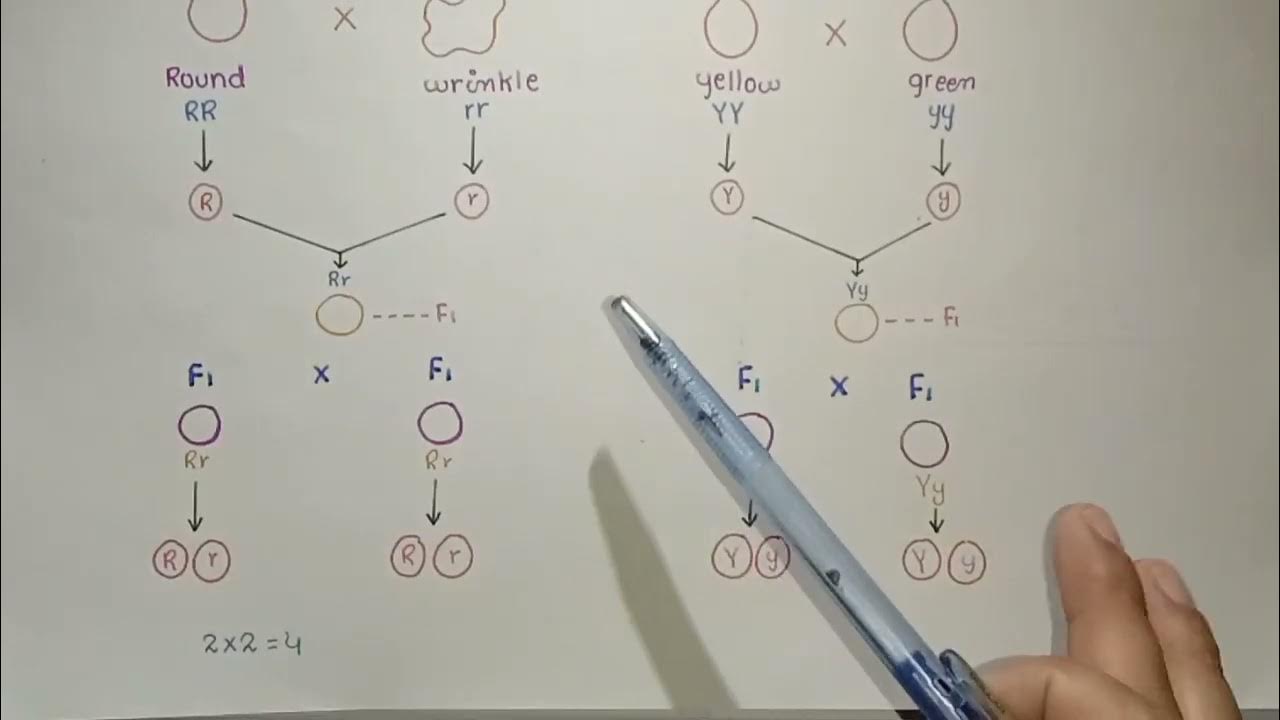 x x
Round wrinkle yellow green
RR rr YY yy
R r Y y
Rr Yy
----F₁ ---F₁
F₁ x F₁ F₁ x F₁
Rr Rr Yy
R r R r Y y Y y
2×2=4